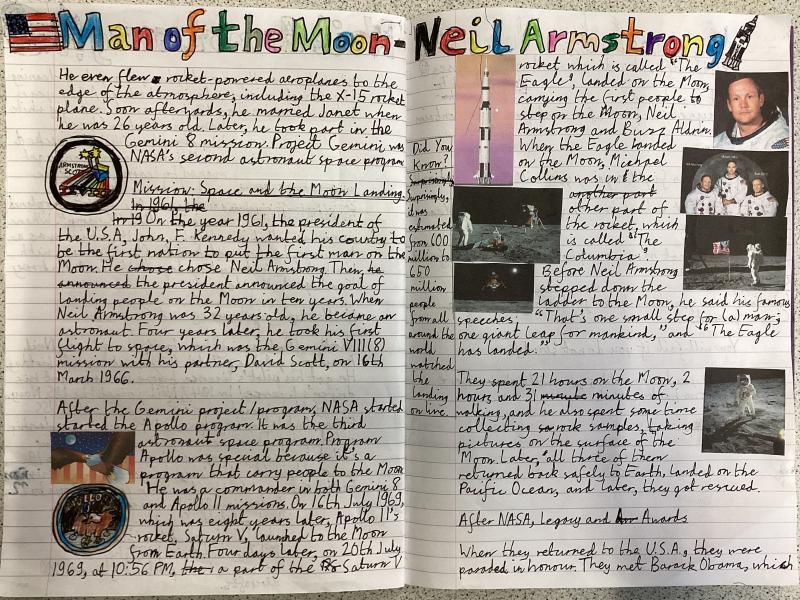 Man of the Moon- Neil Armstrong
He even flew rocket-powered aeroplanes to the
edge of the atmosphere, including the X-15 rocket
plane. Soon afterwards, he married Janet when
he was 26 years old. Later, he took part in the
Gemini 8 mission. Project Gemini was
NASA's second astronaut space program
ARMSTRONG
SCOTT
Mission: Space and the Moon Landing.
In 1961, the
In 19 On the year 1961, the president of
the U.S.A, John, F. Kennedy wanted his country to
be the first nation to put the first man on the
Moon. He chose chose Neil Armstrong. Then, he
announced the president announced the goal of
landing people on the Moon in ten years. When
Neil Armstrong was 32 years old, he became an
astronaut. Four years later, he took his first
flight to space, which was the Gemini VIII(8)
mission with his partner, David Scott, on 16th
March 1966.
After the Gemini project/program, NASA started
started the Apollo program. It was the third
astronaut space program. Program
Apollo was special because it's a
program that carry people to the Moon
APOLLO
He was a commander in both Gemini 8
and Apollo 11 missions. On 16th July 1969,
which was eight years later, Apollo 11's
rocket, Saturn V, launched to the Moon
from Earth. Four days later, on 20th July
1969, at 10:56 PM, the a part of the Saturn V
rocket which is called "The
Eagle", landed on the Moon,
carrying the first people to
step on the Moon, Neil
Armstrong and Buzz Aldrin.
When the Eagle landed
on the Moon, Michael
Collins was in the
another part
other part of
the rocket, which
is called "The
Columbia".
Before Neil Armstrong
stepped down the
ladder to the Moon, he said his famous
speeches; "That's one small step for (a) man;
one giant leap for mankind," and "The Eagle
has landed."
Did You
Know?
Surprisingly,
it was
estimated
from 600
million to
650
million
people
from all
around the
world
watched
the
landing
on live.
They spent 21 hours on the Moon, 2
hours and 31 minute minutes of
walking, and he also spent some time
collecting rock samples, taking
pictures on the surface of the
Moon. Later, all three of them
returned back safely to Earth, landed on the
Pacific Ocean, and later, they got rescued.
After NASA, Legacy and Awards
When they returned to the U.S.A., they were
paraded in honour. They met Barack Obama, which